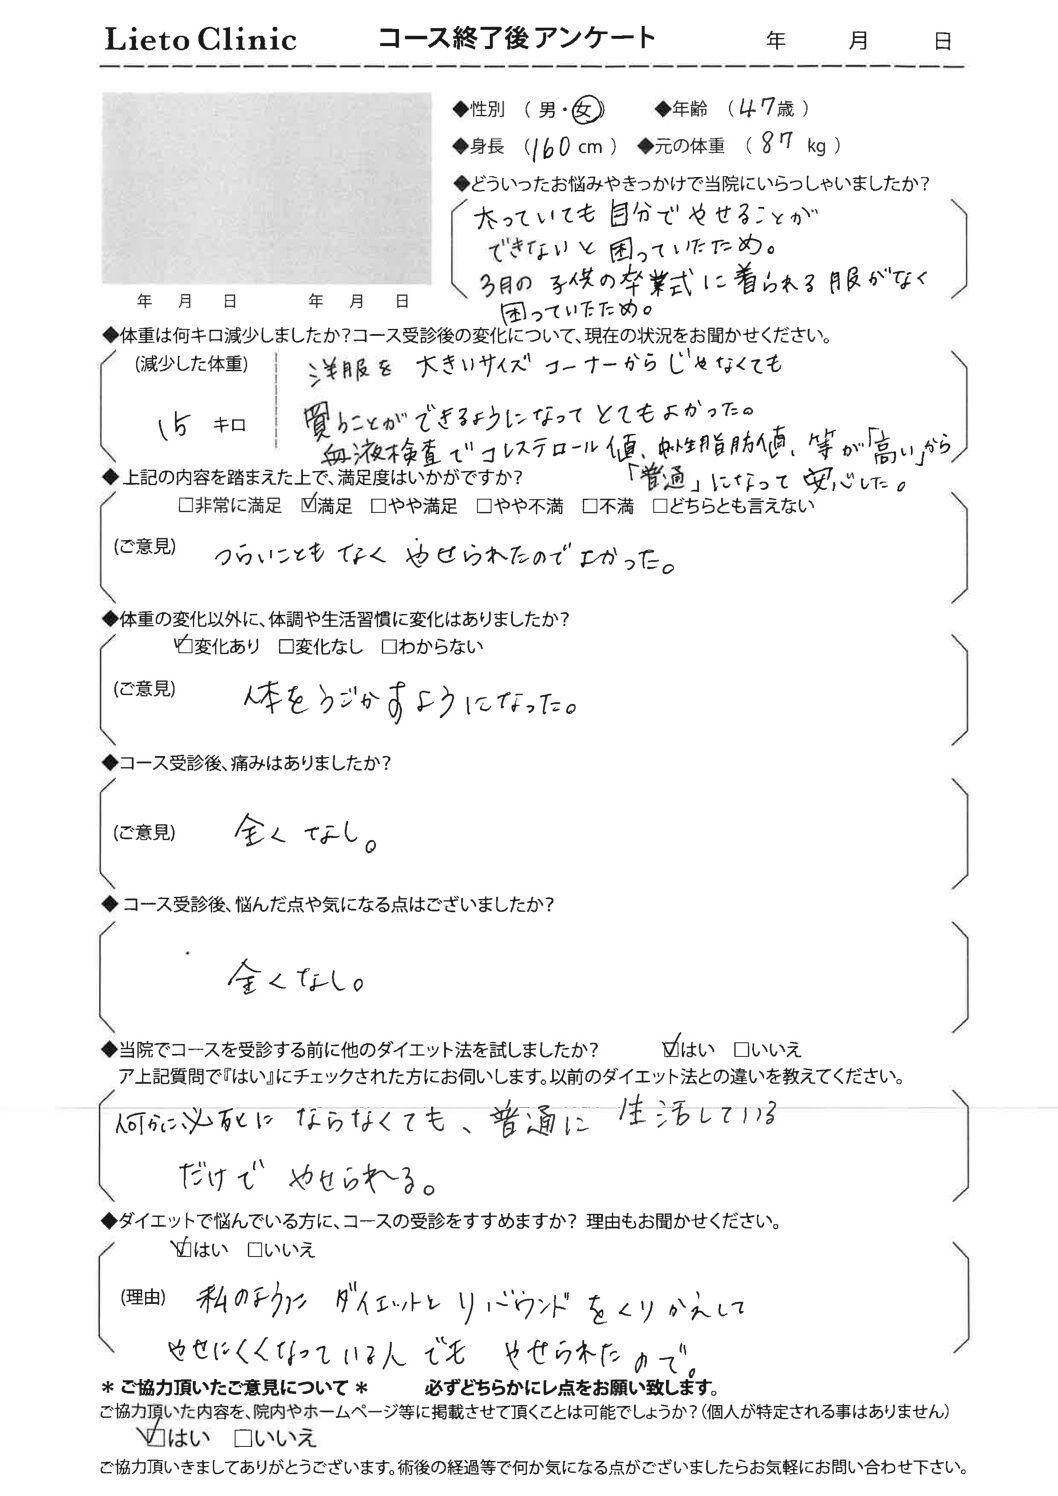 Lieto Clinic コース終了後アンケート 年 月 日
◆性別 （ 男・女） ◆年齢 （ 47歳 ）
◆身長 （160cm ） ◆元の体重 （ 87 kg ）
◆どういったお悩みやきっかけで当院にいらっしゃいましたか？
太っていても 自分で やせることが
できないと 困っていたため。
3月の 子供の 卒業式に 着られる 服がなく
困っていたため。
年 月 日 年 月 日
◆体重は何キロ減少しましたか？コース受診後の変化について、現在の状況をお聞かせください。
(減少した体重)
15 キロ
洋服を 大きいサイズ コーナーからじゃなくても
買うことができるようになって とてもよかった。
血液検査で コレステロール値、中性脂肪値、等が「高い」から
「普通」になって 安心した。
◆上記の内容を踏まえた上で、満足度はいかがですか？
□非常に満足 ☑満足 □やや満足 □やや不満 □不満 □どちらとも言えない
(ご意見) つらいことも なく やせられたので よかった。
◆体重の変化以外に、体調や生活習慣に変化はありましたか？
☑変化あり □変化なし □わからない
(ご意見) 体をうごかすようになった。
◆コース受診後、痛みはありましたか？
(ご意見) 全く なし。
◆ コース受診後、悩んだ点や気になる点はございましたか？
全くなし。
◆当院でコースを受診する前に他のダイエット法を試しましたか？ ☑はい □いいえ
ア上記質問で『はい』にチェックされた方にお伺いします。以前のダイエット法との違いを教えてください。
何かに必死に ならなくても、普通に 生活している
だけで やせられる。
◆ダイエットで悩んでいる方に、コースの受診をすすめますか？ 理由もお聞かせください。
☑はい □いいえ
(理由) 私のように ダイエットと リバウンドを くりかえして
やせにくくなっている人 でも やせられた ので。
＊ ご協力頂いたご意見について ＊ 必ずどちらかにレ点をお願い致します。
ご協力頂いた内容を、院内やホームページ等に掲載させて頂くことは可能でしょうか？（個人が特定される事はありません）
☑はい □いいえ
ご協力頂いきましてありがとうございます。術後の経過等で何か気になる点がございましたらお気軽にお問い合わせ下さい。